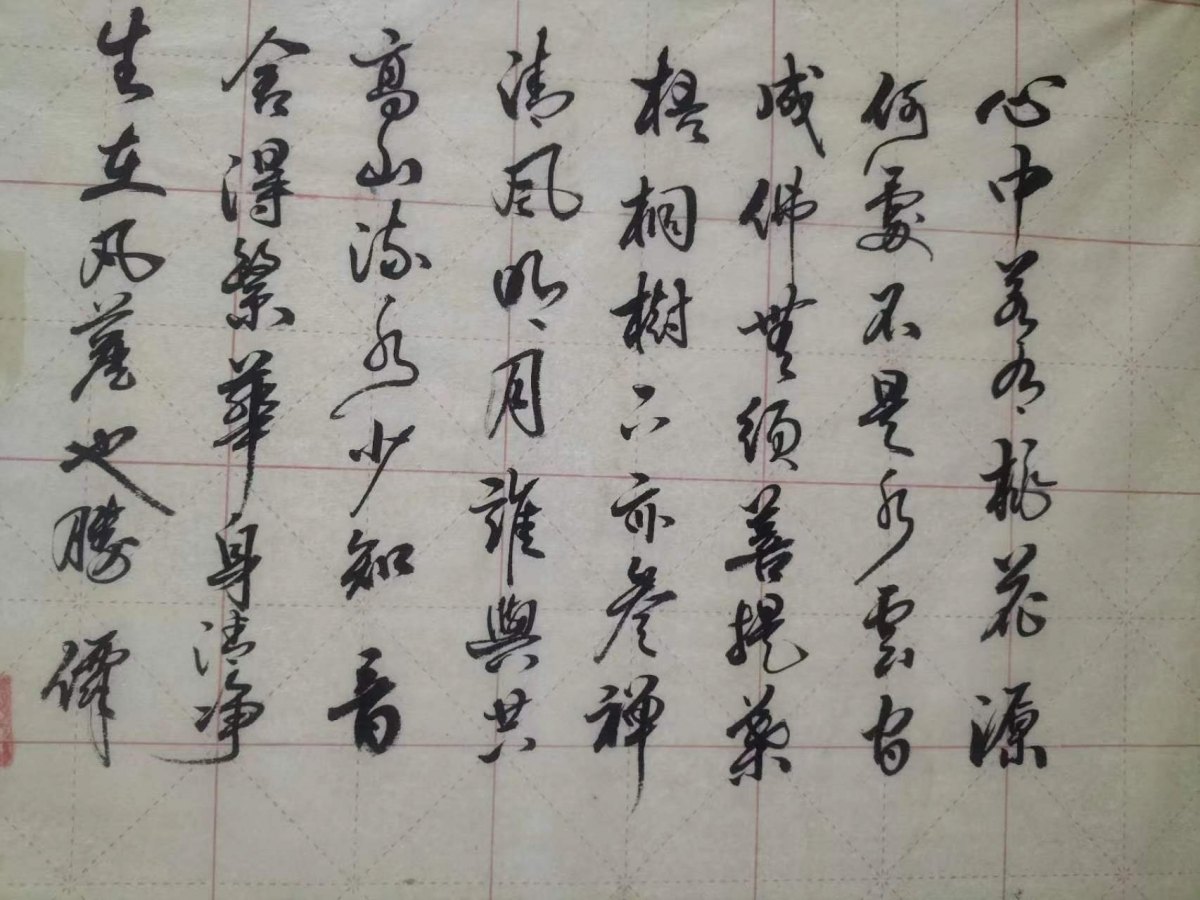 心中若有桃花源
何處不是水雲间
成佛無須菩提葉
梧桐樹下亦參禪
清風明月誰與共
高山流水少知音
舍得繁華身清净
生在凡塵也勝僊